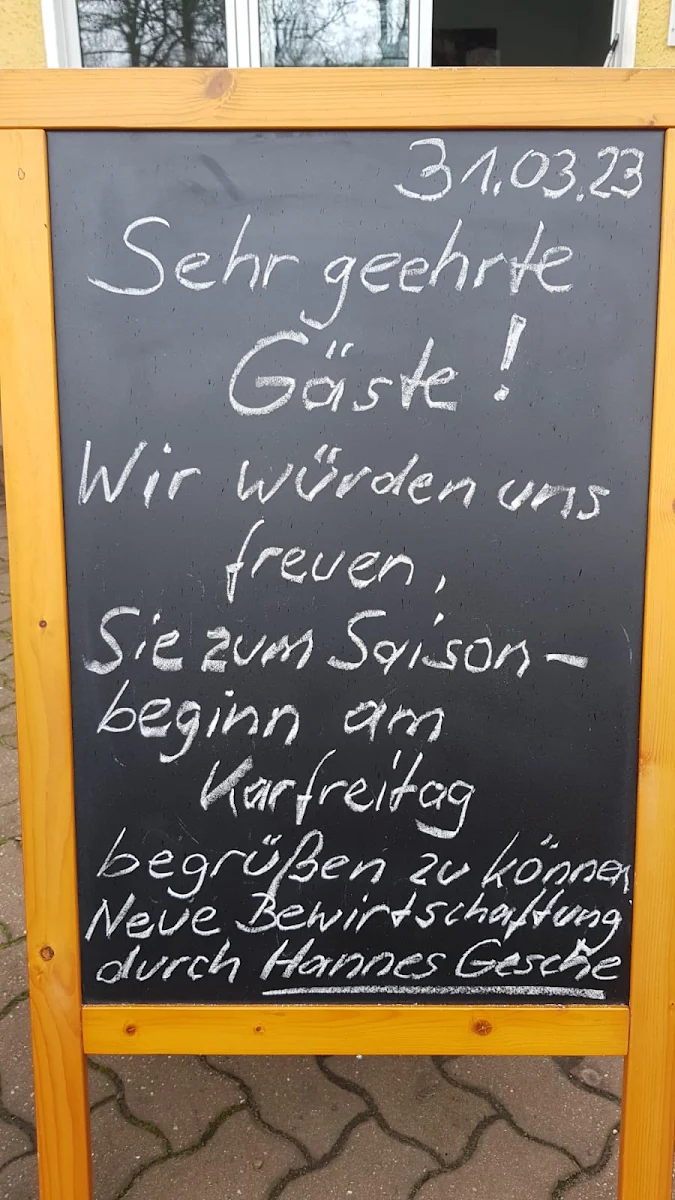 31.03.23
Sehr geehrte
Gäste!
Wir würden uns
freuen,
Sie zum Saison-
beginn am
Karfreitag
begrüßen zu können
Neue Bewirtschaftung
durch Hannes Gesche